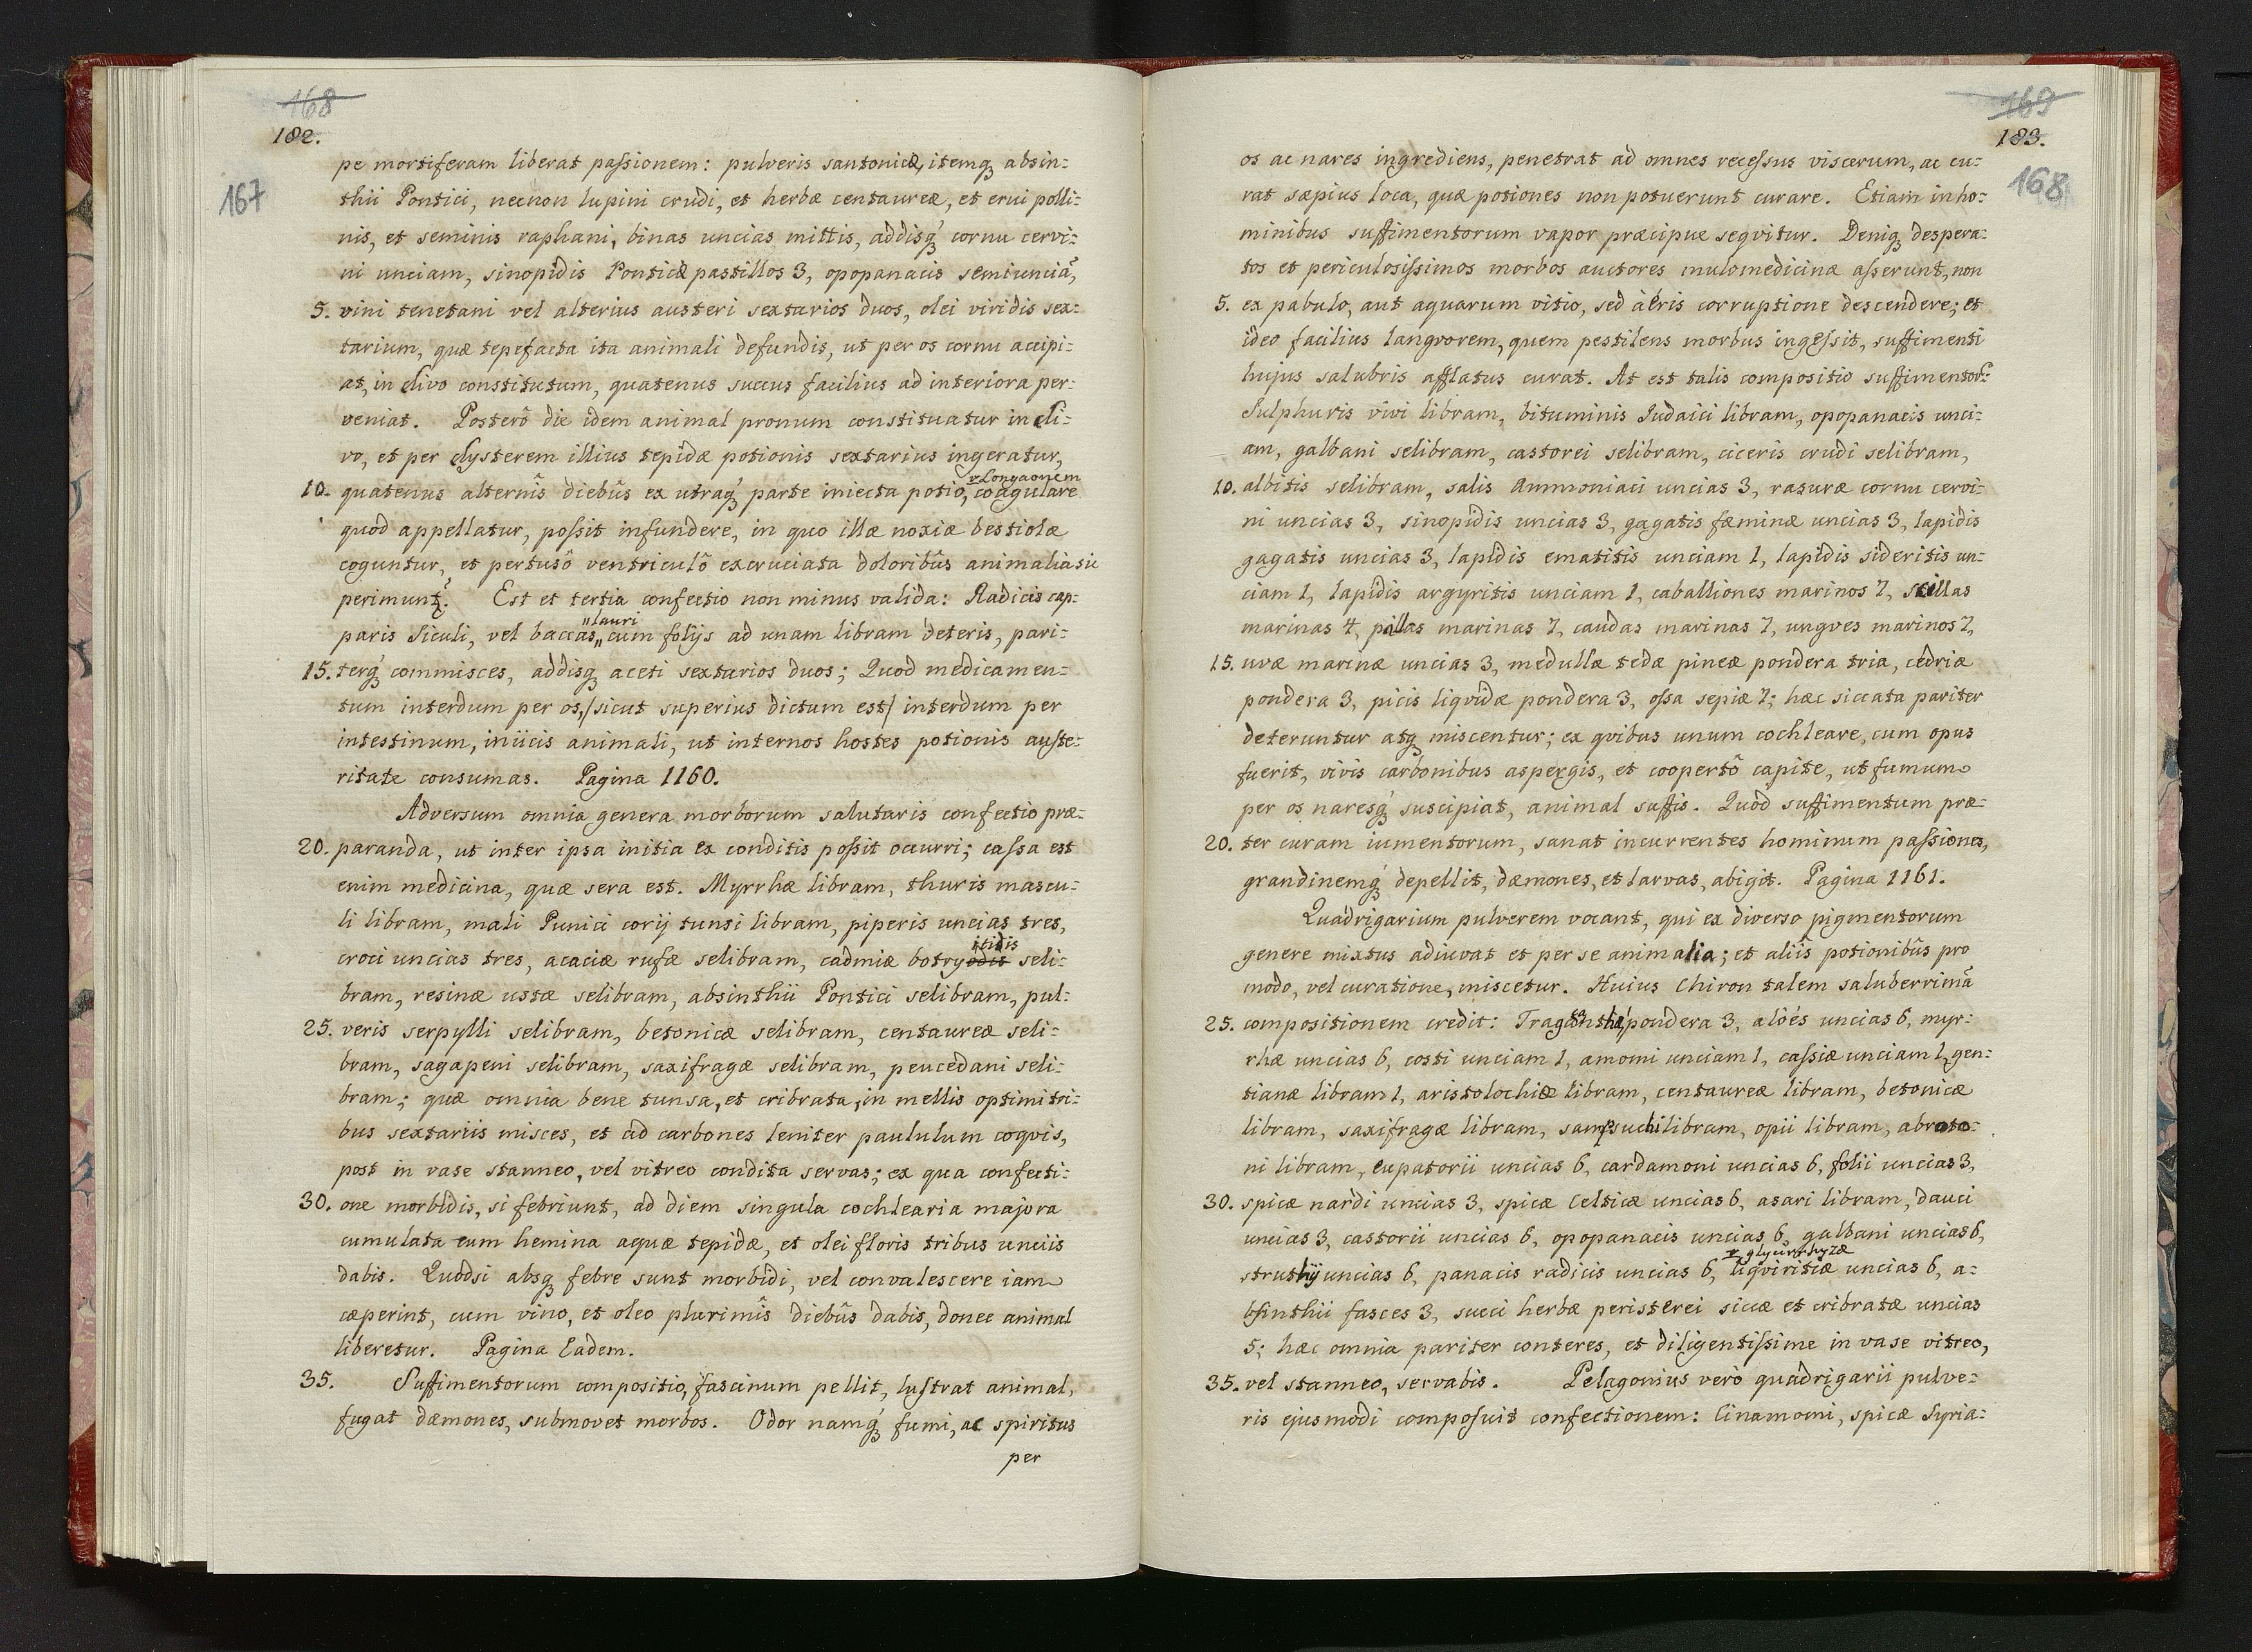 168
182.
167
pe mortiferam liberat passionem: pulveris santonicæ, itemq3 absin=
thii Pontici, necnon lupini crudi, et herbæ centaureæ, et erui polli=
nis, et seminis raphani, binas uncias mittis, addisq3 cornu cervi=
ni unciam, sinopidis Ponticæ pastillos 3, opopanacis semiunciã,
5. vini tenetani vel alterius austeri sextarios duos, olei viridis sex=
tarium, quæ tepefacta ita animali defundis, ut per os cornu accipi=
at, in clivo constitutum, quatenus succus facilius ad interiora per=
veniat. Posterô die idem animal pronum constituatur in cli=
vo, et per clysterem illius tepidæ potionis sextarius ingeratur,
v. Longaonem
10. quatenus alternîs diebûs ex utraq3 parte iniecta potio, coagulare
quod appellatur, possit infundere, in quo illæ noxiæ bestiolæ
coguntur, et pertusô ventriculô excruciata doloribûs animalia sic
perimunt. Est et tertia confectio non minus valida: Radicis cap=
"lauri
paris Siculi, vel baccas,, cum folijs ad unam libram deteris, pari=
15. terq3 commisces, addisq3 aceti sextarios duos; Quod medicamen=
tum interdum per os,/sicut superius dictum est/ interdum per
intestinum, iniicis animali, ut internos hostes potionis auste=
ritate consumas. Pagina 1160.
Adversum omnia genera morborum salutaris confectio præ=
20. paranda, ut inter ipsa initia ex conditis possit occurri; cassa est
enim medicina, quæ sera est. Myrrhæ libram, thuris mascu=
li libram, mali Punici corij tunsi libram, piperis uncias tres,
itidis
croci uncias tres, acaciæ rufæ selibram, cadmiæ botryodis seli=
bram, resinæ ustæ selibram, absinthii Pontici selibram, pul=
25. veris serpylli selibram, betonicæ selibram, centaureæ seli=
bram, sagapeni selibram, saxifragæ selibram, peucedani seli=
bram; quæ omnia bene tunsa, et cribrata, in mellis optimi tri=
bus sextariis misces, et ad carbones leniter paululum coqvis,
post in vase stanneo, vel vitreo condita servas; ex qua confecti=
30. one morbidis, si febriunt, ad diem singula cochlearia majora
cumulata cum hemina aquæ tepidæ, et olei floris tribus unciis
dabis. Quodsi absq3 febre sunt morbidi, vel convalescere iam
cæperint, cum vino, et oleo plurimîs diebûs dabis, donec animal
liberetur. Pagina Eadem.
35. Suffimentorum compositio, fascinum pellit, lustrat animal,
fugat dæmones, submovet morbos. Odor namq3 fumi, ac spiritus
per
169
183.
168
os ac nares ingrediens, penetrat ad omnes recessus viscerum, ac cu=
rat sæpius loca, quæ potiones non potuerunt curare. Etiam in ho=
minibus suffimentorum vapor præcipue seqvitur. Deniq3 despera=
tos et periculosissimos morbos auctores mulomedicinæ asserunt, non
5. ex pabulo, aut aquarum vitio, sed àëris corruptione descendere; et
ideo facilius langvorem, quem pestilens morbus ingessit, suffimenti
hujus salubris afflatus curat. At est talis compositio suffimentorũ:
Sulphuris vivi libram, bituminis Iudaici libram, opopanacis unci=
am, galbani selibram, castorei selibram, ciceris crudi selibram,
10. albitis selibram, salis Ammoniaci uncias 3, rasuræ cornu cervi=
ni uncias 3, sinopidis uncias 3, gagatis fæminæ uncias 3, lapidis
gagatis uncias 3, lapidis ematitis unciam 1, lapidis sideritis un=
ciam 1, lapidis argyritis unciam 1, caballiones marinos 7, scillas
marinas 4, pillas marinas 7, caudas marinas 7, ungves marinos 7,
15. uvæ marinæ uncias 3, medullæ tedæ pineæ pondera tria, cedriæ
pondera 3, picis liqvidæ pondera 3, ossa sepiæ 7; hæc siccata pariter
deteruntur atq3 miscentur; ex qvibus unum cochleare, cum opus
fuerit, vivis carbonibus aspergis, et coopertô capite, ut fumum
per os naresq3 suscipiat, animal suffis. Quod suffimentum præ=
20. ter curam iumentorum, sanat incurrentes hominum passiones,
grandinemq3 depellit, dæmones, et larvas, abigit. Pagina 1161.
Quadrigarium pulverem vocant, qui ex diverso pigmentorum
genere mixtus adiuvat et per se animalia; et aliîs potionibûs pro
modo, vel curatione, miscetur. Huius Chiron talem saluberrimã
25. compositionem credit: pondera 3, aloés uncias 6, myr=
rhæ uncias 6, costi unciam 1, amomi unciam 1, cassiæ unciam 1, gen=
tianæ libram 1, aristolochiæ libram, centaureæ libram, betonicæ
libram, saxifragæ libram, sampsuchi libram, opii libram, abrota=
ni libram, eupatorii uncias 6, cardamoni uncias 6, folii uncias 3,
30. spicæ nardi uncias 3, spicæ Celticæ uncias 6, asari libram, dauci
uncias 3, castorii uncias 6, opopanacis uncias 6, galbani uncias 6,
v. glycirrhyzæ
struthij uncias 6, panacis radicis uncias 6, liqviritiæ uncias 6, a=
bsinthii fasces 3, succi herbæ peristerei siccæ et cribratæ uncias
5; hæc omnia pariter conteres, et diligentissime in vase vitreo,
35. vel stanneo, servabis. Pelagonius verò quadrigarii pulve=
ris ejusmodi composuit confectionem: Cinamomi, spicæ Syria=